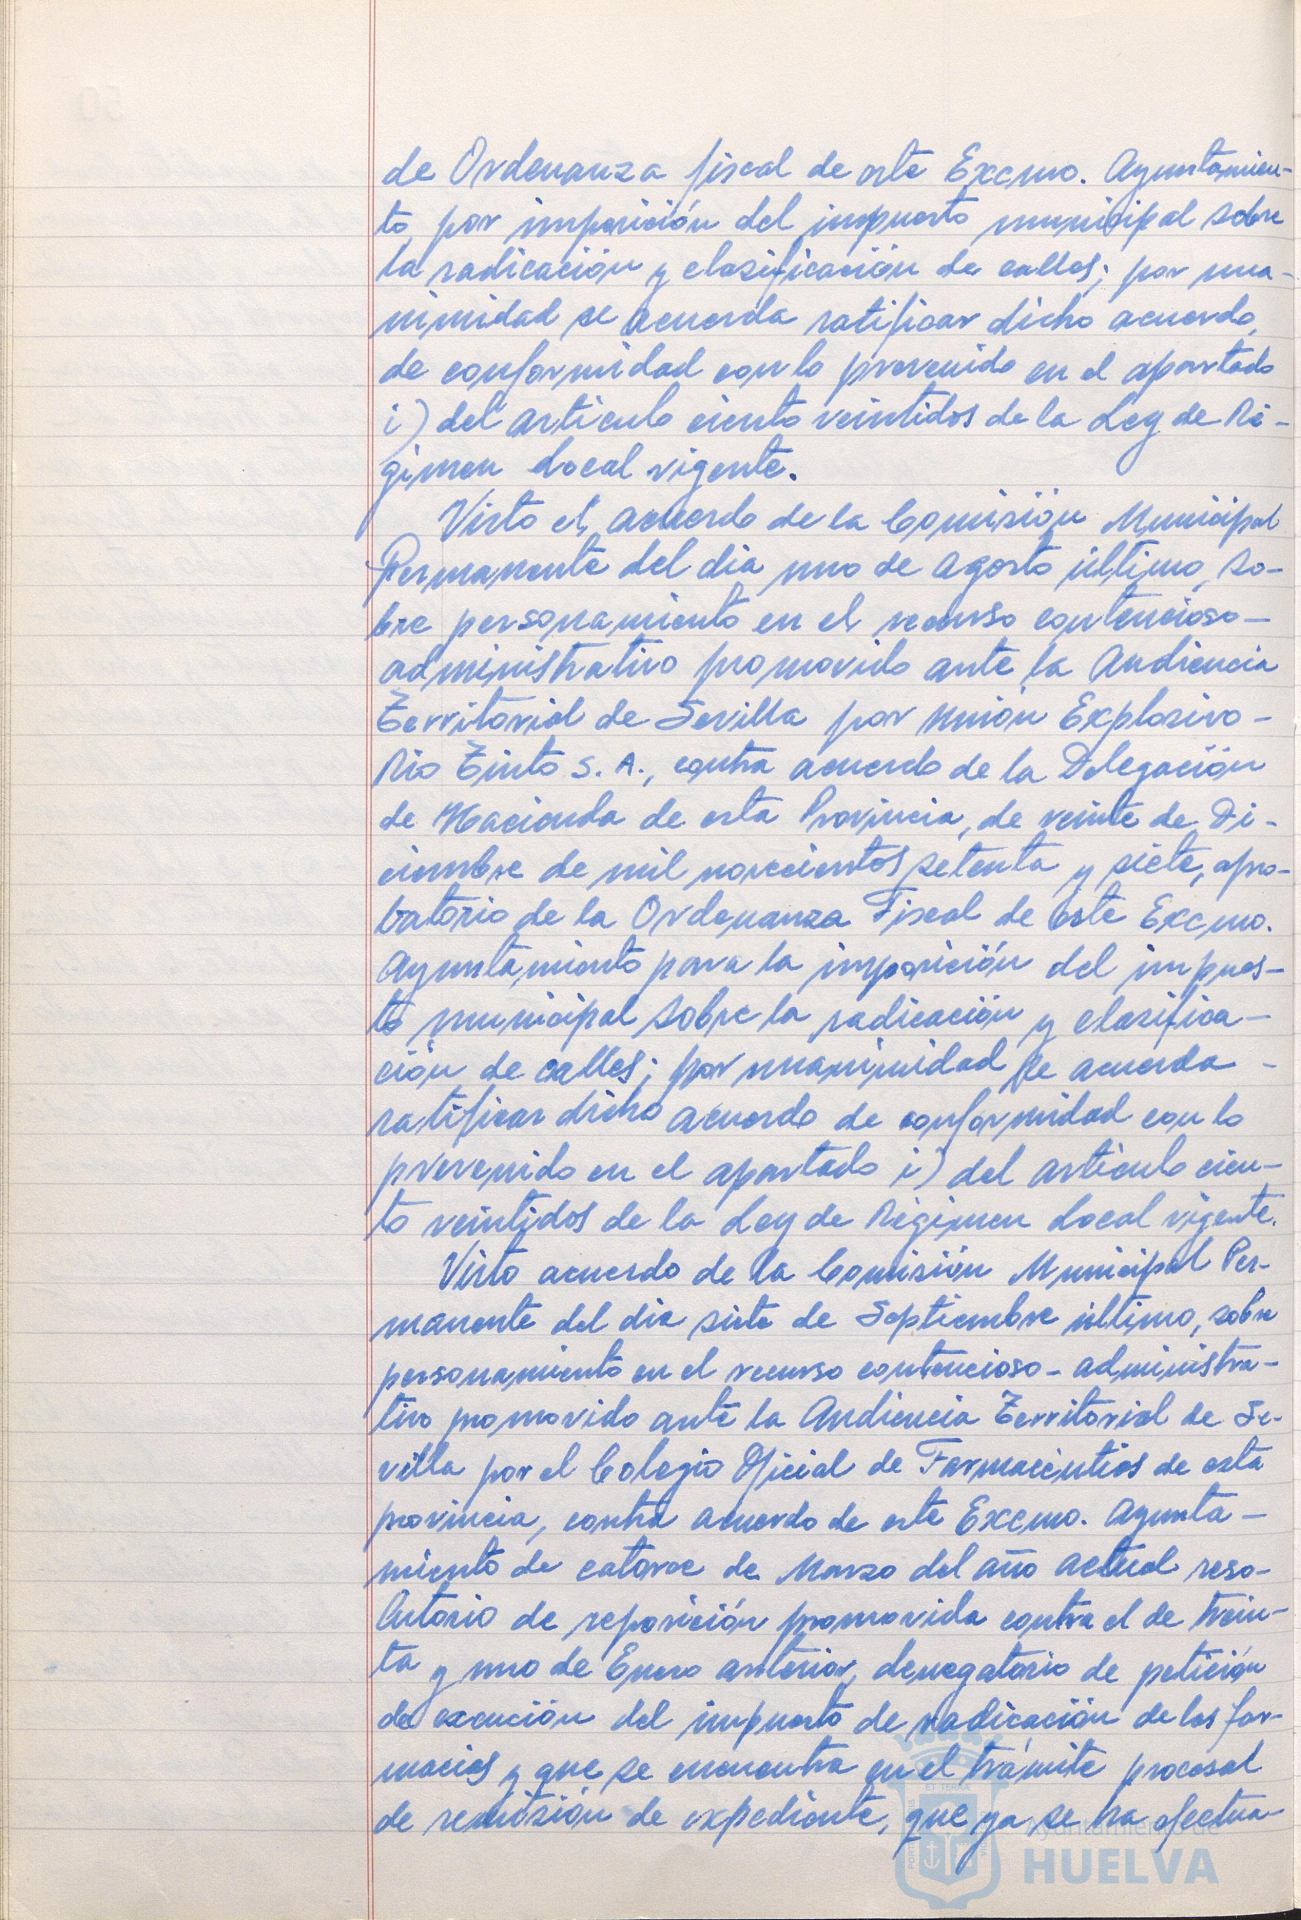 de Ordenanza fiscal de este Excmo. Ayuntamien-
to, por imposición del impuesto municipal sobre
la radicación y clasificación de calles; por una-
nimidad se acuerda ratificar dicho acuerdo,
de conformidad con lo prevenido en el apartado
i) del artículo ciento veintidos de la Ley de Ré-
gimen Local vigente.
Visto el acuerdo de la Comisión Municipal
Permanente del dia uno de Agosto último, so-
bre personamiento en el recurso contencioso-
administrativo promovido ante la Audiencia
Territorial de Sevilla por Unión Explosivo-
Rio Tinto S. A., contra acuerdo de la Delegación
de Hacienda de esta Provincia, de veinte de Di-
ciembre de mil novecientos setenta y siete, apro-
batorio de la Ordenanza Fiscal de este Excmo.
Ayuntamiento para la imposición del impues-
to municipal sobre la radicación y clasifica-
ción de calles; por unanimidad se acuerda -
ratificar dicho acuerdo de conformidad con lo
prevenido en el apartado i) del artículo cien-
to veintidos de la Ley de Régimen Local vigente.
Visto acuerdo de la Comisión Municipal Per-
manente del dia siete de Septiembre último, sobre
personamiento en el recurso contencioso-administra-
tivo promovido ante la Audiencia Territorial de Se-
villa por el Colegio Oficial de Farmacéutios de esta
provincia, contra acuerdo de este Excmo. Ayunta-
miento de catorce de Marzo del año actual reso-
lutorio de reposición promovida contra el de trein-
ta y uno de Enero anterior, denegatorio de petición
de exención del impuesto de radicación de las far-
macias y que se encuentra en el trámite procesal
de remisión de expediente, que ya se ha efectua-
Ayuntamiento de
HUELVA